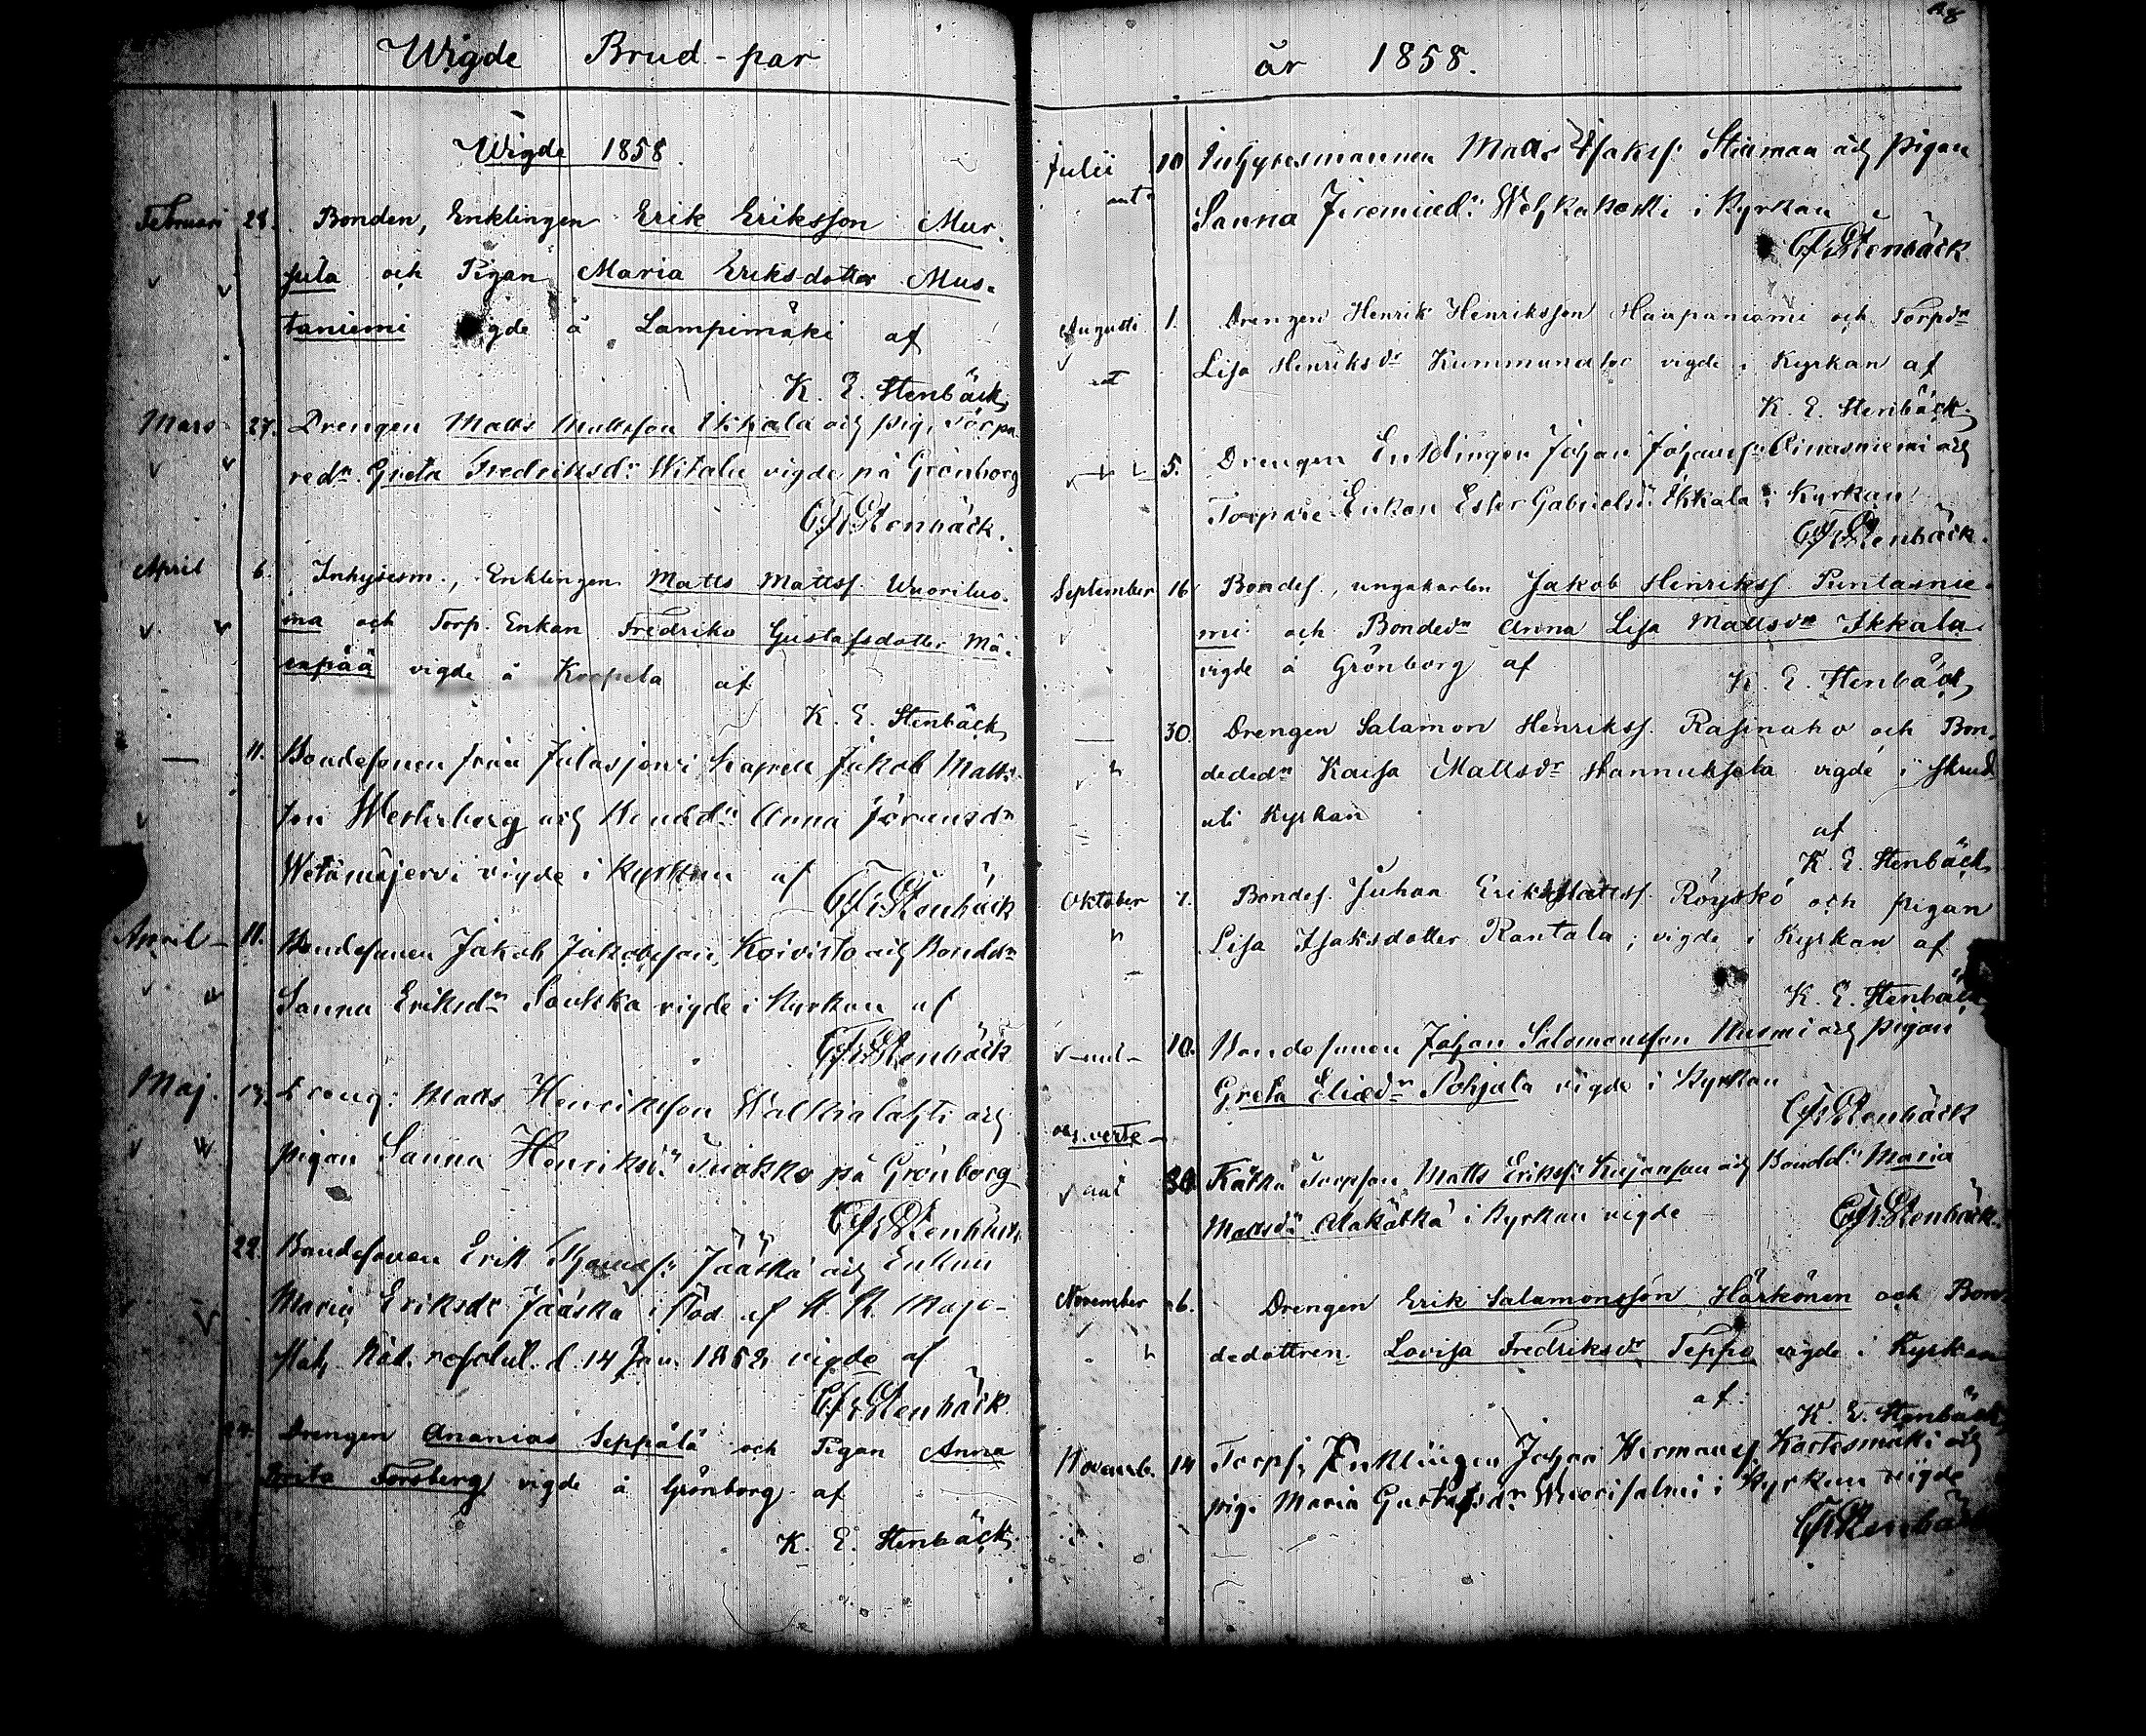 Wigde Brud-par
Wigde 1858.
Februari 28. Bonden, Enklingen Erik Eriksson Mur-
sula och Pigan Maria Eriksdotter Mus-
taniemi vigde å Lampimäki af
K. E. Stenbäck
Mars 27. Drengen Matts Mattsson Ikkala och pig. Torpa
redr. Greta Fredriksdr Witalu vigde på Grönborg
Stenbäck.
April 6. Inhysesm., Enklingen Matts Mattss. Wuoriluo-
ma och Torp. Enkan Fredrika Gustafsdotter Mä-
enpää vigde å Korpela af
K. E. Stenbäck
— 11. Bondesonen från Jalasjerwi kapell Jakob Matts-
son och Bonddr Anna
vigde i kyrkan af Stenbäck
April 11. Bondesonen Jakob Jakobsson Koivisto och Bonddr
Sanna Eriksdr Saukka vigde i Kyrkan af
Stenbäck
Maj. 13. Dreng: Matts Henriksson och
pigan Sanna Henriksdr på Grönborg
Stenbäck
22. Bondesonen Erik Jääskä och Enkan
Maria Eriksdr Jääskä i stöd af K. K. Maje-
stäts Nåd. resolut. d. 14 Jan. 1858 vigde af
Stenbäck
24. Drengen Ananias Seppälä och Pigan Anna
Brita Forsberg vigde å Grönborg af
K. E. Stenbäck
år 1858.
Julii 10 Inhysesmannen Matts Isakss. och Pigan
Sanna i Kyrkan
Stenbäck
Augusti 1. Drengen Henrik Henriksson Haapaniemi och Torpdr
Lisa Henriksdr vigde i Kyrkan af
K. E. Stenbäck
5. Drengen Enklingen Johan Johanss. och
Torpare Enkan Ester Gabrielsdr Ikkala i Kyrkan
Stenbäck.
September 16 Bondes., ungakarlen Jakob Henrikss. Puntarnie-
mi och Bondedr Anna Lisa Mattsdr Ikkala
vigde å Grönborg af
K. E. Stenbäck
— 30. Drengen Salamon Henrikss. Rasinaho och Bon-
dededr Kaisa Mattsdr Hannuksela vigde i skrud
uti Kyrkan
af
K. E. Stenbäck
Oktober 7. Bondes. Juhan Röyskö och pigan
Lisa Isaksdotter Rantala; vigde i Kyrkan af
K. E. Stenbäck
10. Bondesonen Johan Salomonsson och pigan
Greta Eliædr Pohjala vigde i Kyrkan
Stenbäck
30 Kätkä Torpson Matts Erikss. och Bonddr Maria
Mattsdr Alakätkä i Kyrkan vigde
Stenbäck.
November 6. Drengen Erik Salamonsson Härkönen och Bon-
dedottren Lovisa Fredriksdr Teppo vigde i Kyrkan
af:
K. E. Stenbäck
Novemb. 14 Torps. Enklingen Johan Hermanss. Kortesmäki och
pig. Maria Gustafsdr Wuorisalmi i Kyrkan vigde
Stenbäck